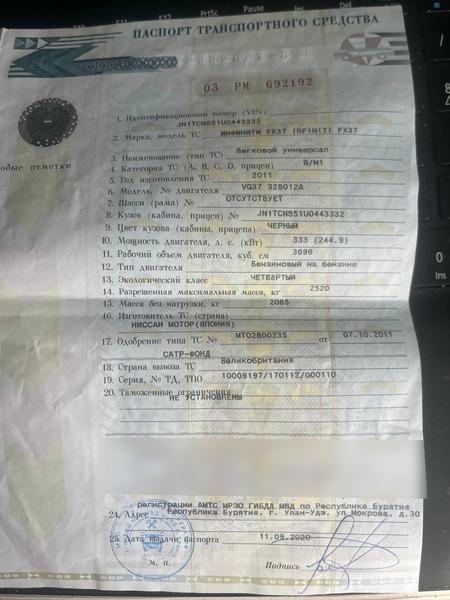 ПАСПОРТ ТРАНСПОРТНОГО СРЕДСТВА
03 РМ 692192
обые отметки
1. Идентификационный номер (VIN) JN1TCNS51U0443332
2. Марка, модель ТС ИНФИНИТИ FX37 INFINITI FX37
3. Наименование (тип ТС) Легковой универсал
4. Категория ТС (A, B, C, D, прицеп) B/M1
5. Год изготовления ТС 2011
6. Модель, № двигателя VQ37 328012A
7. Шасси (рама) № ОТСУТСТВУЕТ
8. Кузов (кабина, прицеп) № JN1TCNS51U0443332
9. Цвет кузова (кабины, прицепа) ЧЕРНЫЙ
10. Мощность двигателя, л. с. (кВт) 333 (244.9)
11. Рабочий объем двигателя, куб. см 3696
12. Тип двигателя Бензиновый на бензине
13. Экологический класс ЧЕТВЕРТЫЙ
14. Разрешенная максимальная масса, кг 2520
15. Масса без нагрузки, кг 2085
16. Изготовитель ТС (страна)
НИССАН МОТОР(ЯПОНИЯ)
17. Одобрение типа ТС № МТ02В00235 от 07.10.2011
САТР-ФОНД
18. Страна вывоза ТС Великобритания
19. Серия, № ТД, ТПО 10009197/170112/000110
20. Таможенные ограничения
НЕ УСТАНОВЛЕНЫ
регистрации АМТС МРЭО ГИБДД МВД по Республике Бурятия
24. Адрес Республика Бурятия, г. Улан-Удэ, ул Мокрова, д.30
25. Дата выдачи паспорта 11.09.2020
М. П. Подпись